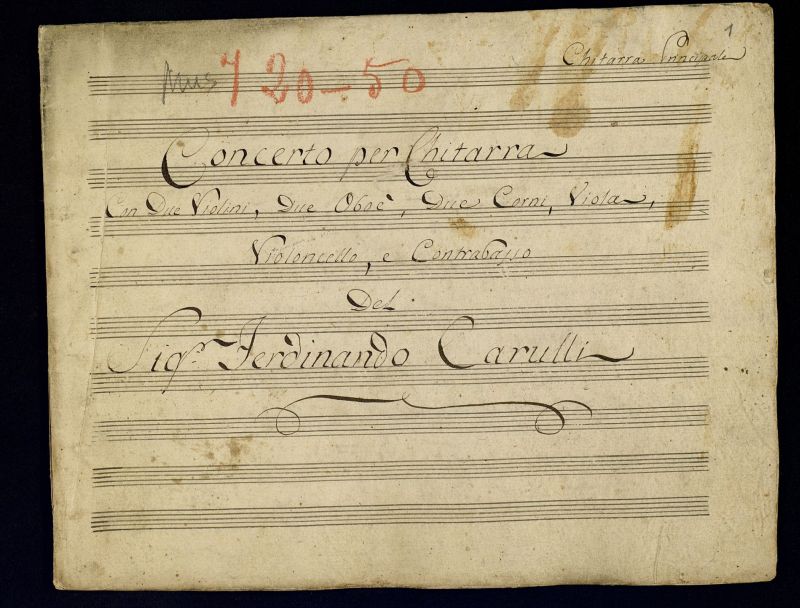 1
Chitarra Principale
Mus 720-50
Concerto per Chitarra
Con Due Violini, Due Oboè, Due Corni, Viola,
Violoncello, e Contrabasso
Del
Sigr. Ferdinando Carulli